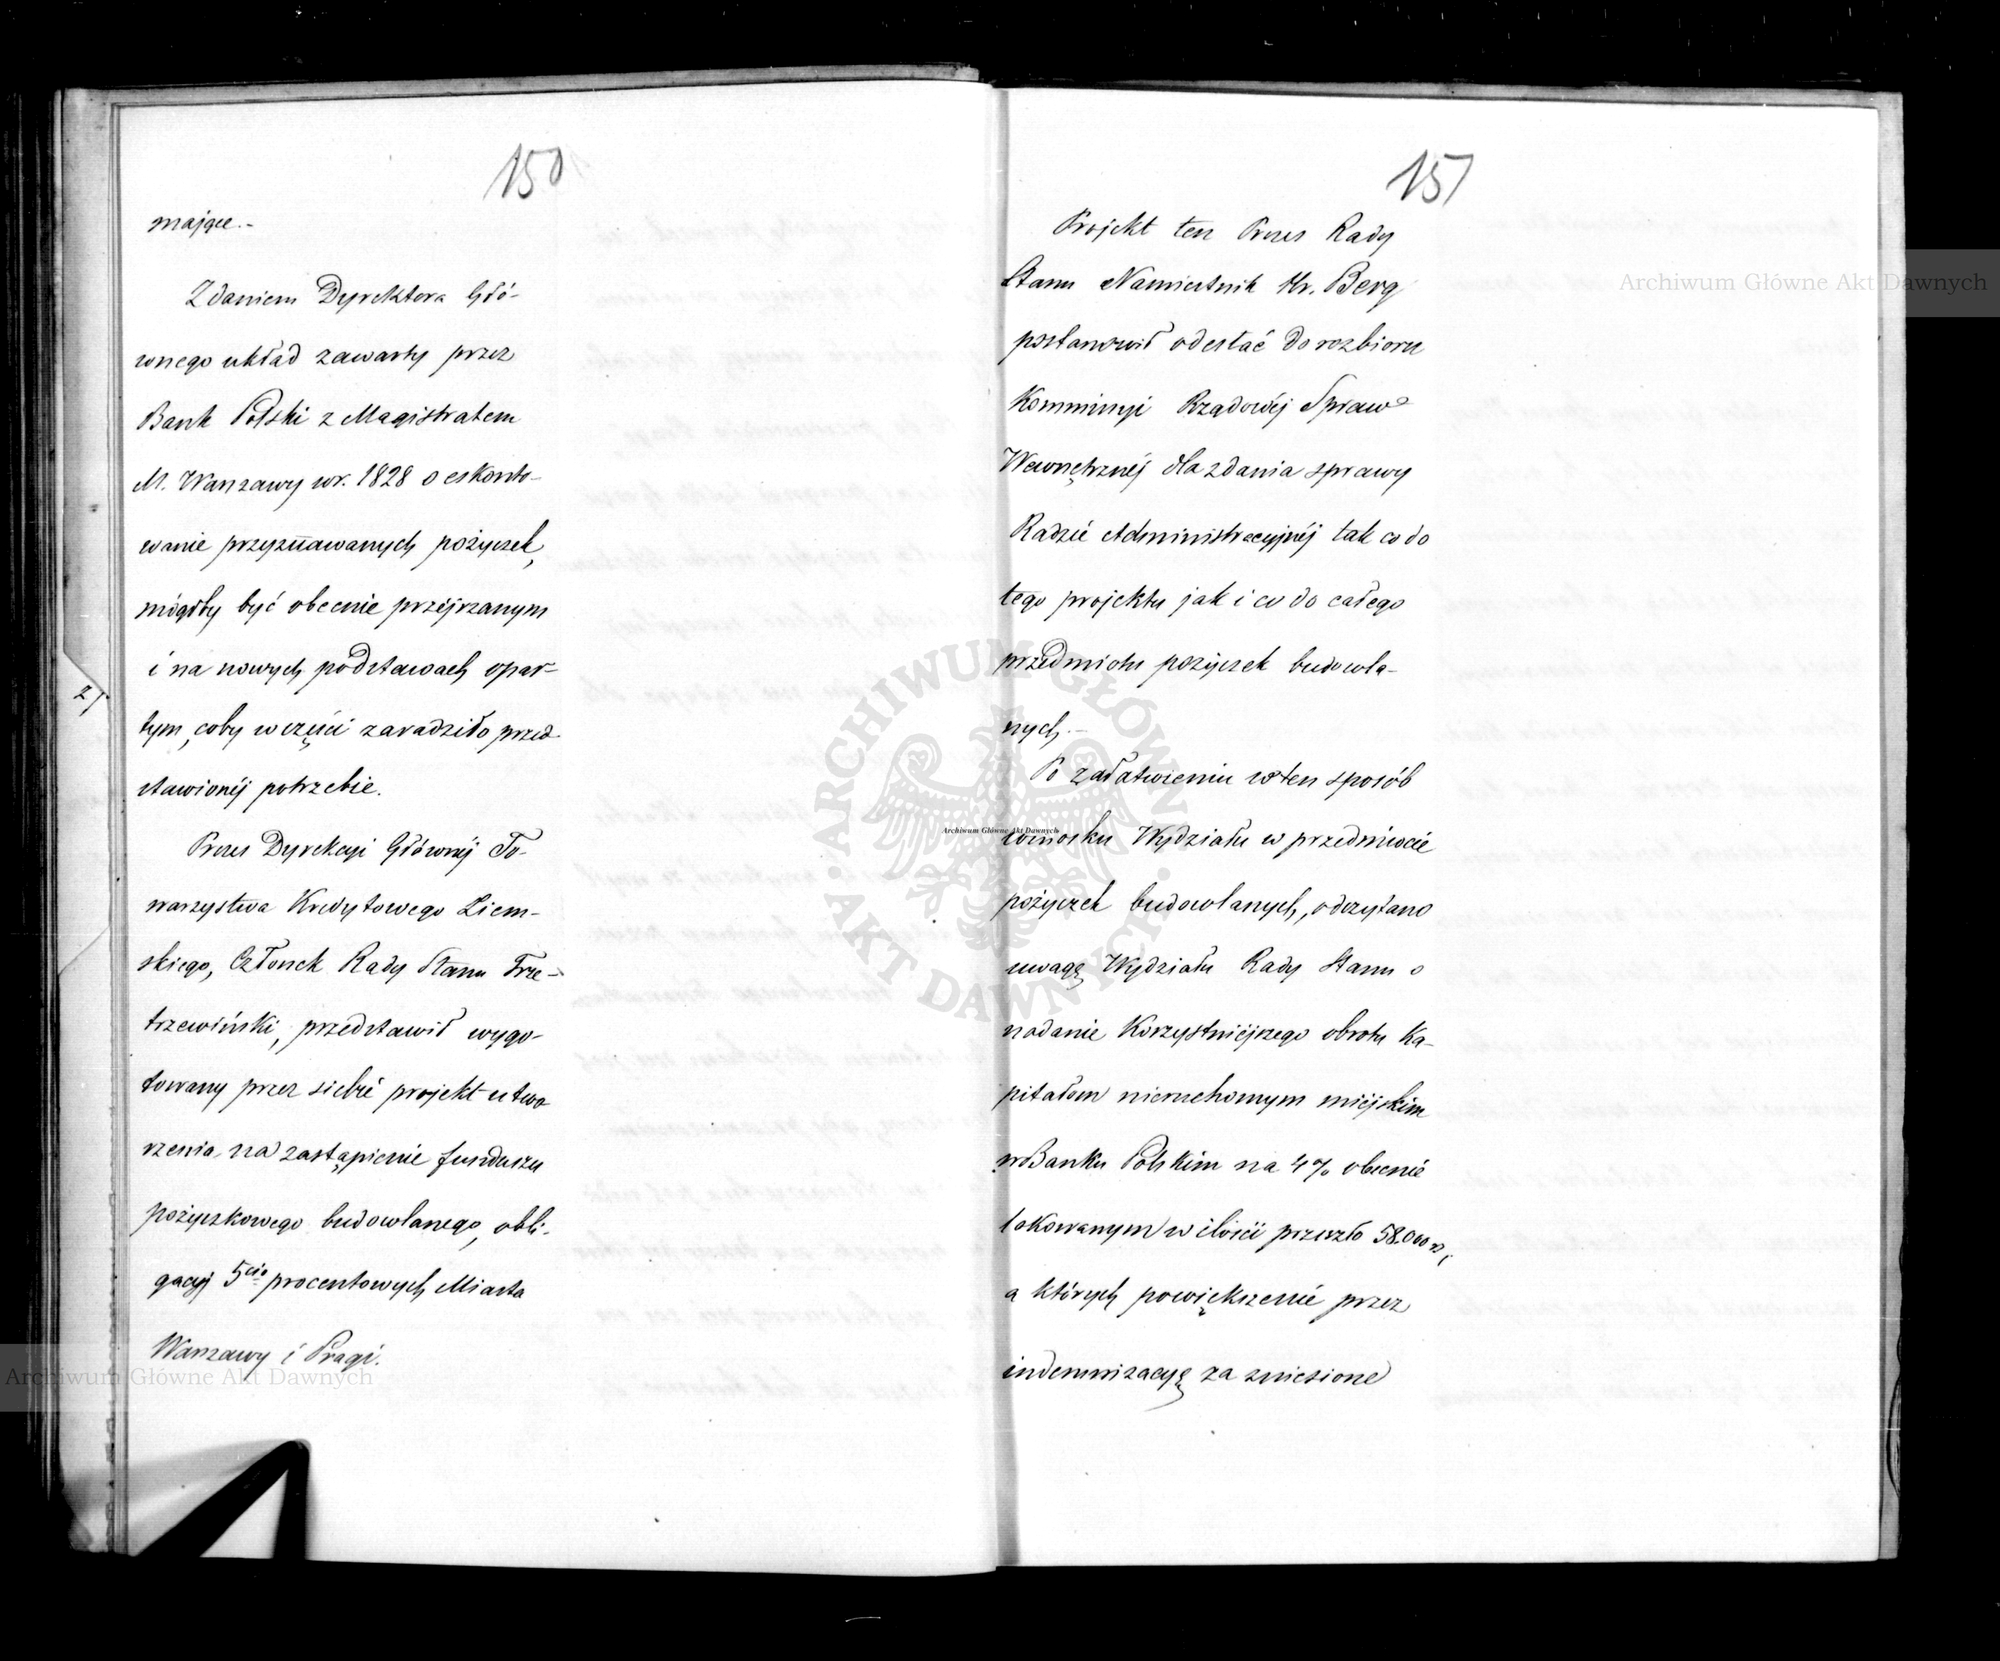 150
mające.-
Zdaniem Dyrektora Głó-
wnego układ zawarty przez
Bank Polski z Magistratem
M. Warszawy w r. 1828 o eskonto-
wanie przyznawanych pożyczek,
mógłby być obecnie przéjrzanym
i na nowych podstawach opar-
tym, coby w części zaradziło przed
stawionéj potrzebie.
Prezes Dyrekcyi Głównéj To-
warzystwa Kredytowego Ziem-
skiego, Członek Rady Stanu Trze-
trzewiński, przedstawił wygo-
towany przez siebie projekt utwo
rzenia na zastąpienie funduszu
pożyczkowego budowlanego, obli-
gacyj 5cio procentowych Miasta
Warszawy i Pragi.
151
Projekt ten Prezes Rady
Stanu Namiestnik Hr. Berg
postanowił odesłać do rozbioru
Kommissyi Rządowéj Spraw
Wewnętrznéj dla zdania sprawy
Radzie Administracyjnéj tak co do
tego projektu jak i co do całego
przedmiotu pożyczek budowla-
nych.-
Po załatwieniu w ten sposób
wniosku Wydziału w przedmiocie
pożyczek budowlanych, odczytano
uwagę Wydziału Rady Stanu o
nadanie korzystniéjszego obrotu ka-
pitałom nieruchomym miéjskim
w Banku Polskim na 4% obecnie
lokowanym w ilości przeszło 58.000 rs,
a których powiększenie przez
indemnizacyę za zniesione
Archiwum Główne Akt Dawnych
Archiwum Główne Akt Dawnych
Archiwum Główne Akt Dawnych
ARCHIWUM GŁÓWNE AKT DAWNYCH